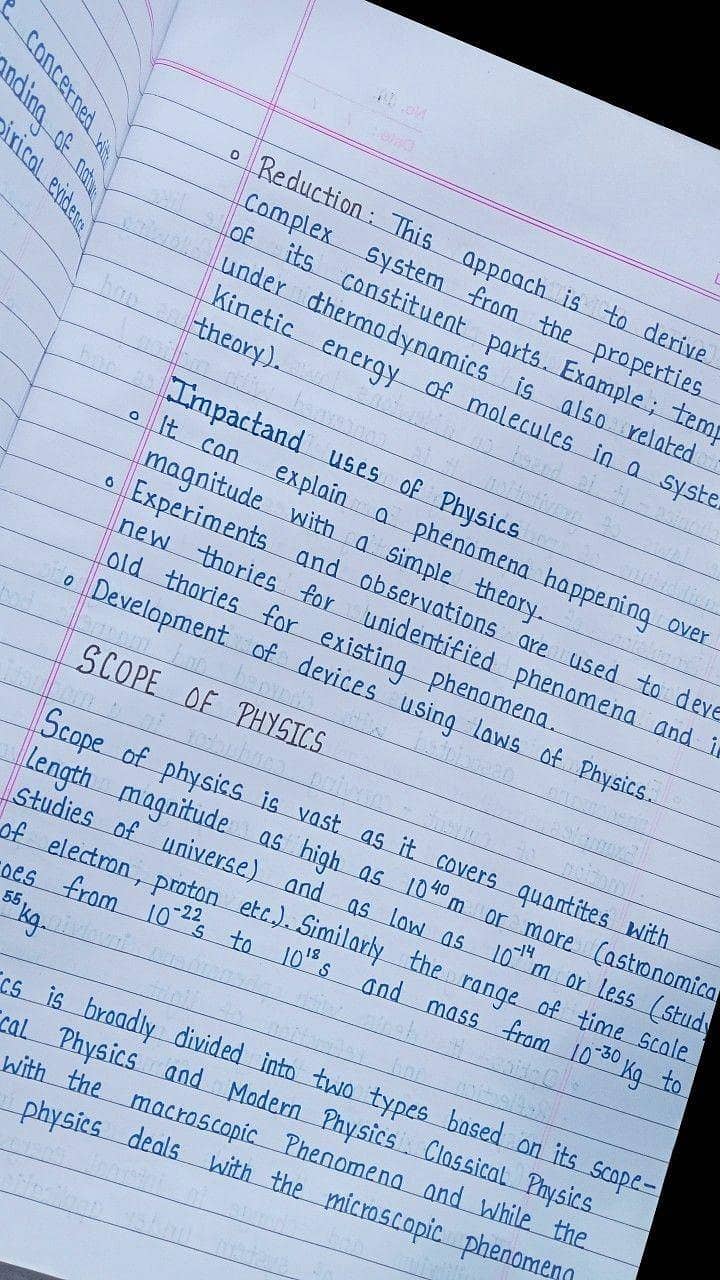 e concerned with
anding of natu
pirical evidence
No.
Date:
Reduction: This appoach is to derive
Complex system from the properties
of its constituent parts. Example; temp
under thermodynamics is also related
Kinetic energy of molecules in a syste
theory).
Impactand uses of Physics
It can explain a phenomena happening over
magnitude with a simple theory.
Experiments and observations are used to deve
new thories for unidentified phenomena and i
old thories for existing phenomena.
Development of devices using laws of Physics.
SCOPE OF PHYSICS
Scope of physics is vast as it covers quantites with
length magnitude as high as 10⁴⁰m or more (astronomica
studies of universe) and as low as 10⁻¹⁴m or less (study
of electron, proton etc.). Similarly the range of time scale
oes from 10⁻²²s to 10¹⁸s and mass from 10⁻³⁰kg to
⁵⁵kg.
ics is broadly divided into two types based on its scope-
ical Physics and Modern Physics. Classical Physics
with the macroscopic Phenomena and while the
physics deals with the microscopic phenomena